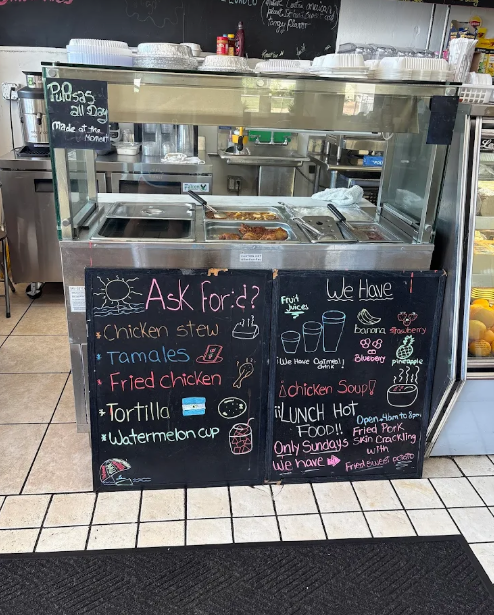 Pupusas
all Day
Made at the
Moment
Ask For:d?
Chicken stew
Tamales
Fried chicken
Tortilla
Watermelon cup
We Have
Fruit
Juices
banana
strawberry
Berry
pineapple
¡We Have Oatmeal!
drink
¡chicken Soup!
¡¡LUNCH Hot
FOOD!!
Open 4am to 8pm
Fried Pork
Only Sundays
Skin Crackling
with
We have
Fried sweet potato